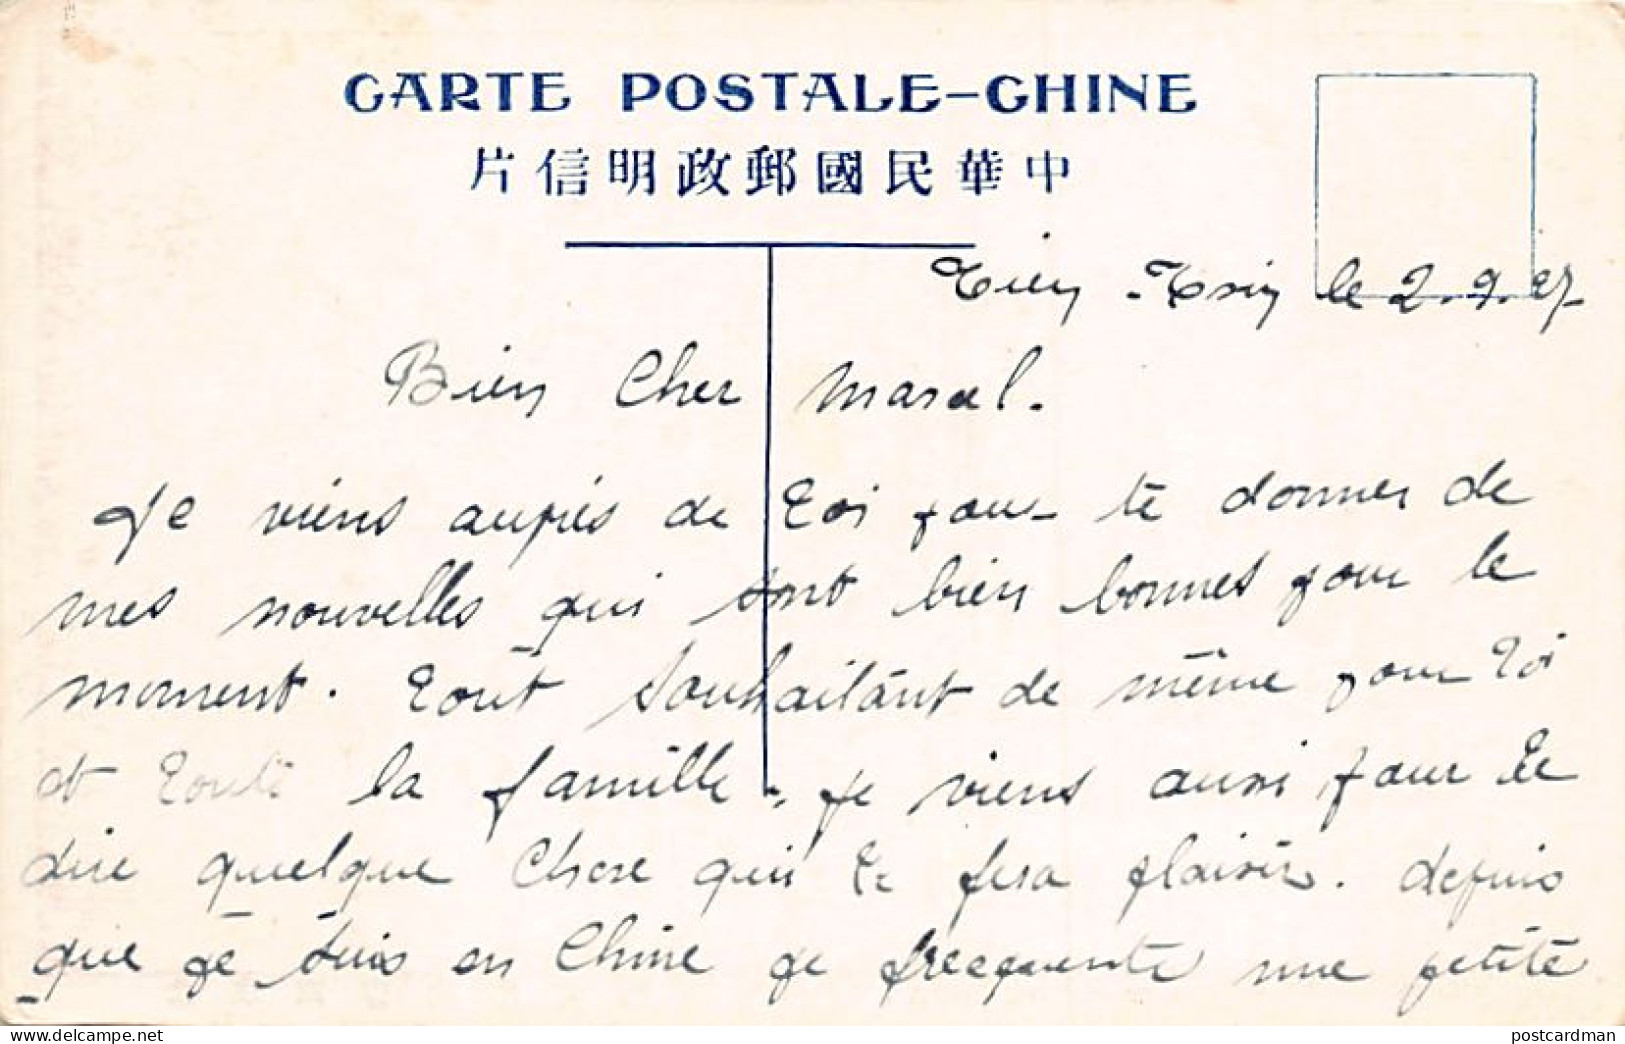 CARTE POSTALE-CHINE
片信明政郵國民華中
Tien-Tsin le 2.9.27
Bien Cher Marcel.
Je viens auprès de toi pour te donner de
mes nouvelles qui sont bien bonnes pour le
moment. tout souhaitant de même pour toi
et toute la famille. je viens aussi pour te
dire quelque chose qui te fera plaisir. depuis
que je suis en Chine je frecquente une petite
delcampe.net
postcardman